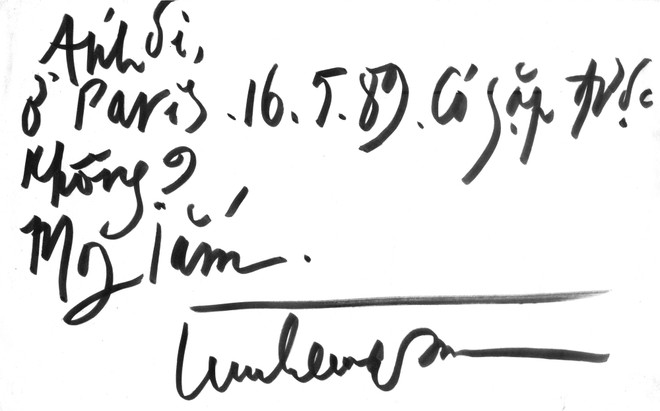 Ánh ơi,
ở Paris. 16.5.89. Có gặp được
không?
Mg lắm.